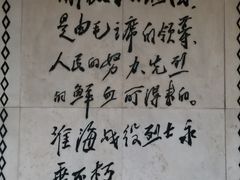 是由毛主席的领导、
人民的努力、先烈
的鲜血所得来的。
淮海战役烈士永
垂不朽